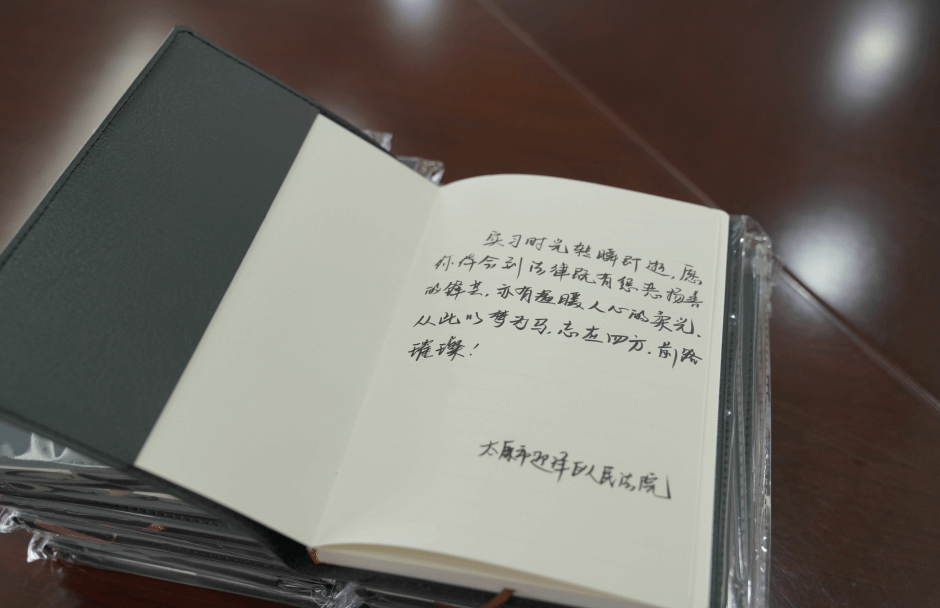 实习时光转瞬即逝,愿
你体会到法律既有惩恶扬善
的锋芒,亦有温暖人心的柔光.
从此以梦为马,志在四方,前路
璀璨!
太原市迎泽区人民法院